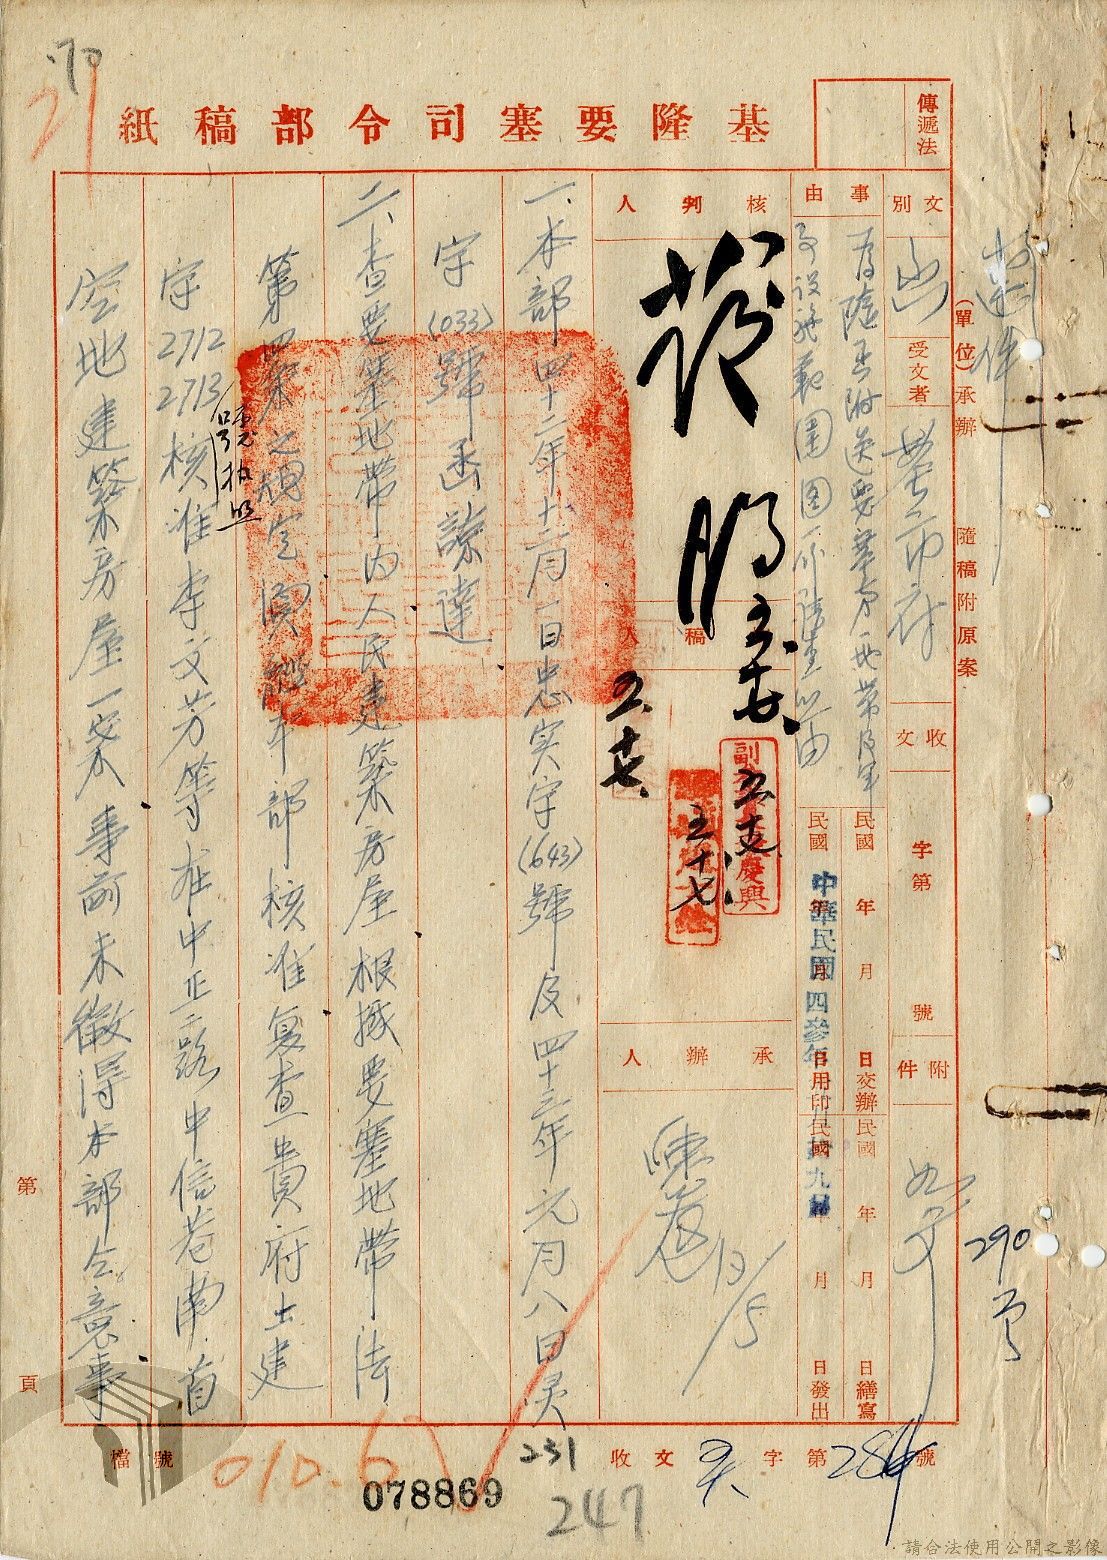 基隆要塞司令部稿紙
傳遞法
文別
函
受文者
基市府
收文
字第
號
附件
如文
事由
為隨函附送要塞第一地帶及軍
事設施範圍圖一份請查照由
(單位)承辦
隨稿附原案
核判人
核稿人
承辦人
民國 年 月 日交辦
民國 年 月 日繕寫
民國 年 月 日用印
民國 年 月 日發出
中華民國四參年
拾九日
五
13/5
一、本部四十二年十二月一日忠实字(643)號及四十三年元月八日昃
字(033)號函諒達
二、查要塞地帶內人民建築房屋根據要塞地帶法
第四條之規定須經本部核准复查貴府土建
字2712 2713號執照核准李文芳等在中正路中信巷南首
空地建築房屋一案事前未徵得本部仝意事
第 頁
檔號
010.6
收文 昃字第284號
290號
231
247
078869
70
21
請合法使用公開之影像